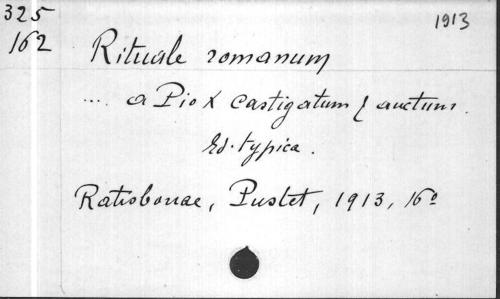 325
162
1913
Rituale romanum
.... a Pio X castigatum & auctum.
Ed. typica.
Ratisbonae, Pustet, 1913, 16º